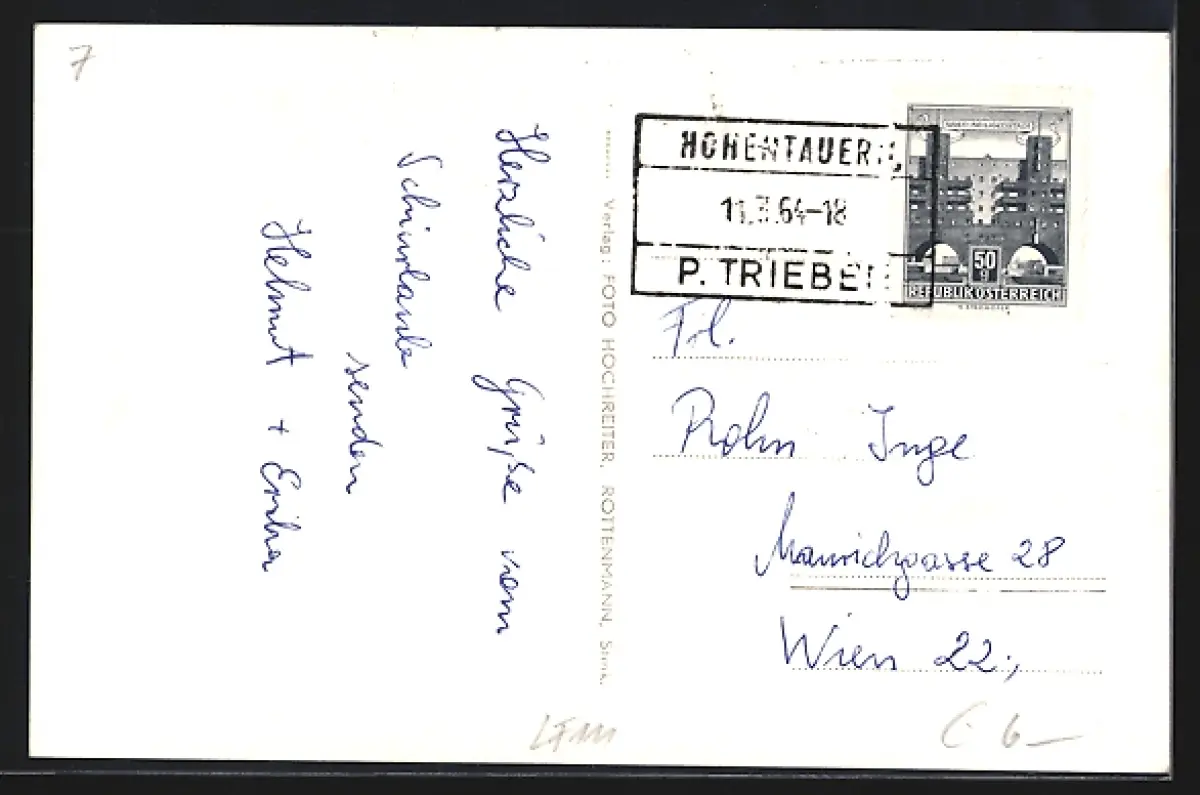 7
Herzliche Grüße vom
Schiurlaub
senden
Helmut + Erika
Verlag: FOTO HOCHREITER, ROTTENMANN,
HOHENTAUERN,
64-18
P. TRIEBEN
50
g
REPUBLIK ÖSTERREICH
Frl.
Rohn Inge
Maurichgasse 28
Wien 22.,